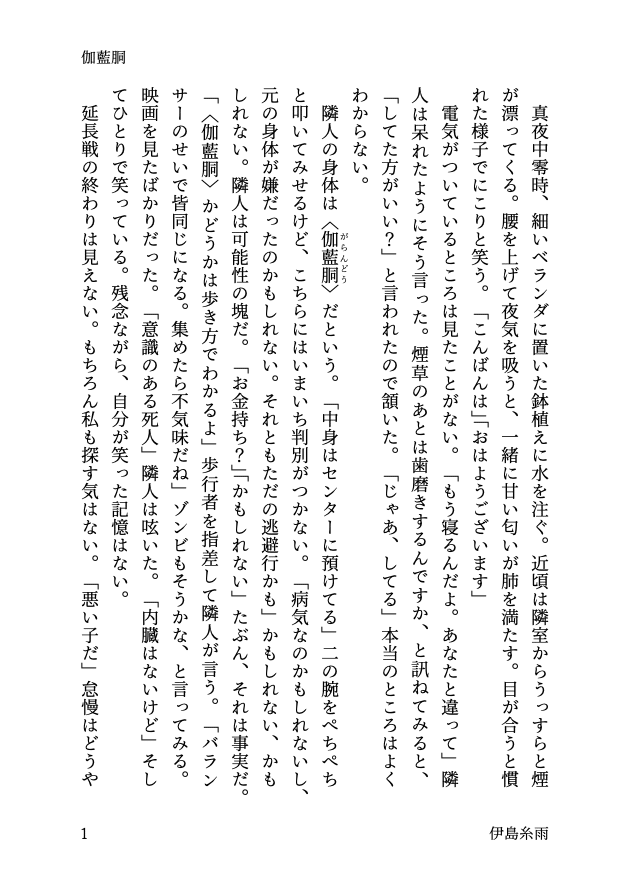 伽藍胴
　真夜中零時、細いベランダに置いた鉢植えに水を注ぐ。近頃は隣室からうっすらと煙
が漂ってくる。腰を上げて夜気を吸うと、一緒に甘い匂いが肺を満たす。目が合うと慣
れた様子でにこりと笑う。「こんばんは」「おはようございます」
　電気がついているところは見たことがない。「もう寝るんだよ。あなたと違って」隣
人は呆れたようにそう言った。煙草のあとは歯磨きするんですか、と訊ねてみると、
「してた方がいい？」と言われたので頷いた。「じゃあ、してる」本当のところはよく
わからない。
　隣人の身体は〈伽藍胴〉だという。「中身はセンターに預けてる」二の腕をぺちぺち
がらんどう
と叩いてみせるけど、こちらにはいまいち判別がつかない。「病気なのかもしれないし、
元の身体が嫌だったのかもしれない。それともただの逃避行かも」かもしれない、かも
しれない。隣人は可能性の塊だ。「お金持ち？」「かもしれない」たぶん、それは事実だ。
「〈伽藍胴〉かどうかは歩き方でわかるよ」歩行者を指差して隣人が言う。「バラン
サーのせいで皆同じになる。集めたら不気味だね」ゾンビもそうかな、と言ってみる。
映画を見たばかりだった。「意識のある死人」隣人は呟いた。「内臓はないけど」そし
てひとりで笑っている。残念ながら、自分が笑った記憶はない。
　延長戦の終わりは見えない。もちろん私も探す気はない。「悪い子だ」怠慢はどうや
1
伊島糸雨